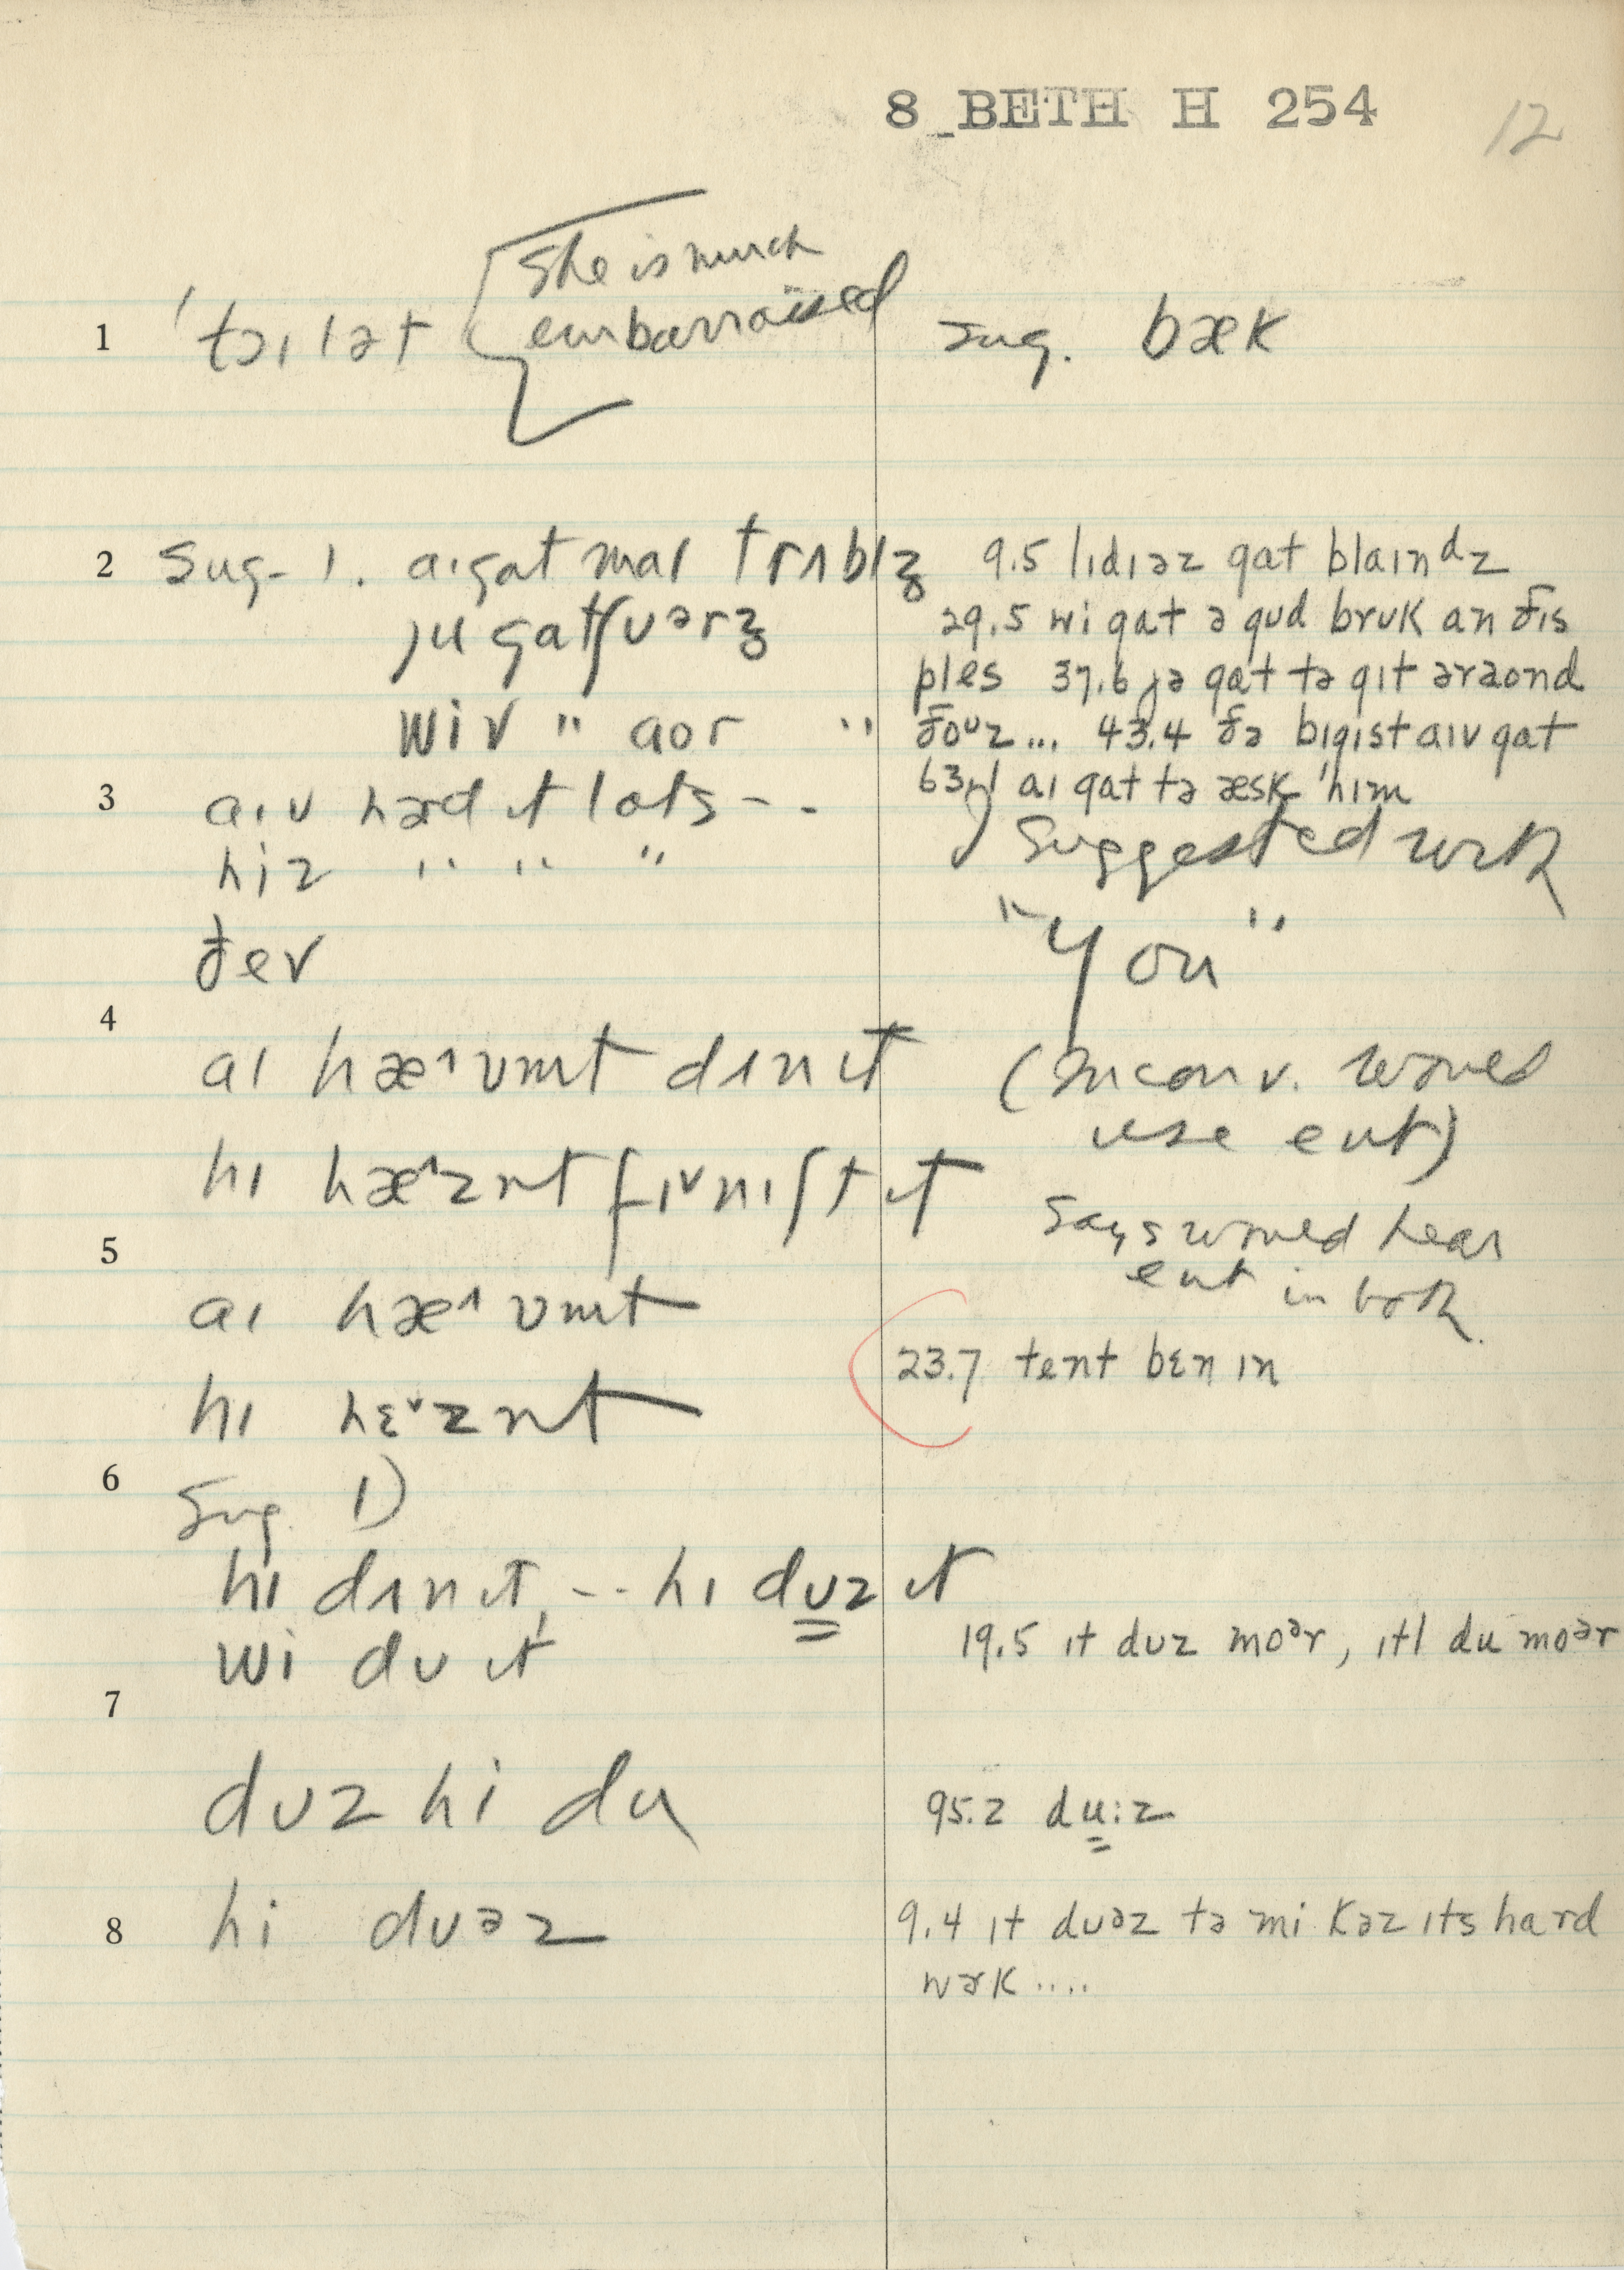 8 BETH H 254 12
She is much
embarrassed
1 'tɔɪlət sug. bæk
2 Sug. 1. aɪ gat maɪ trʌblz 9.5 lɪdɪəz gat blaɪnᵈz
ju gat ʃuərz 29.5 wi gat ə gud bruk an ðɪs
ples 37.6 jə gat tə gɪt əraond
wiv " aor " ðoᵘz... 43.4 ðə bɪgɪst aɪv gat
63.1 aɪ gat tə æsk 'hɪm
3 aɪv hərd ɪt lats - -
hiz " " " ) Suggested with
ðev "You"
4
aɪ hæ^vnt dʌn ɪt (In conv. would
use ent)
hɪ hæ^znt fɪᵛnɪʃt ɪt
Says would hear
ent in both.
5
aɪ hæ^vnt
23.7 tent bɛn ɪn
hɪ hɛᵛznt
6 Sug 1)
hɪ dʌn ɪt, -- hɪ dʊz ɪt
wi dʊ ɪt 19.5 ɪt dʊz moᵊr, ɪtl du moᵊr
7
dʊz hi du 95.2 du:z
8 hi dʊəz 9.4 ɪt dʊəz tə mi kəz ɪts hard
wɚk ....